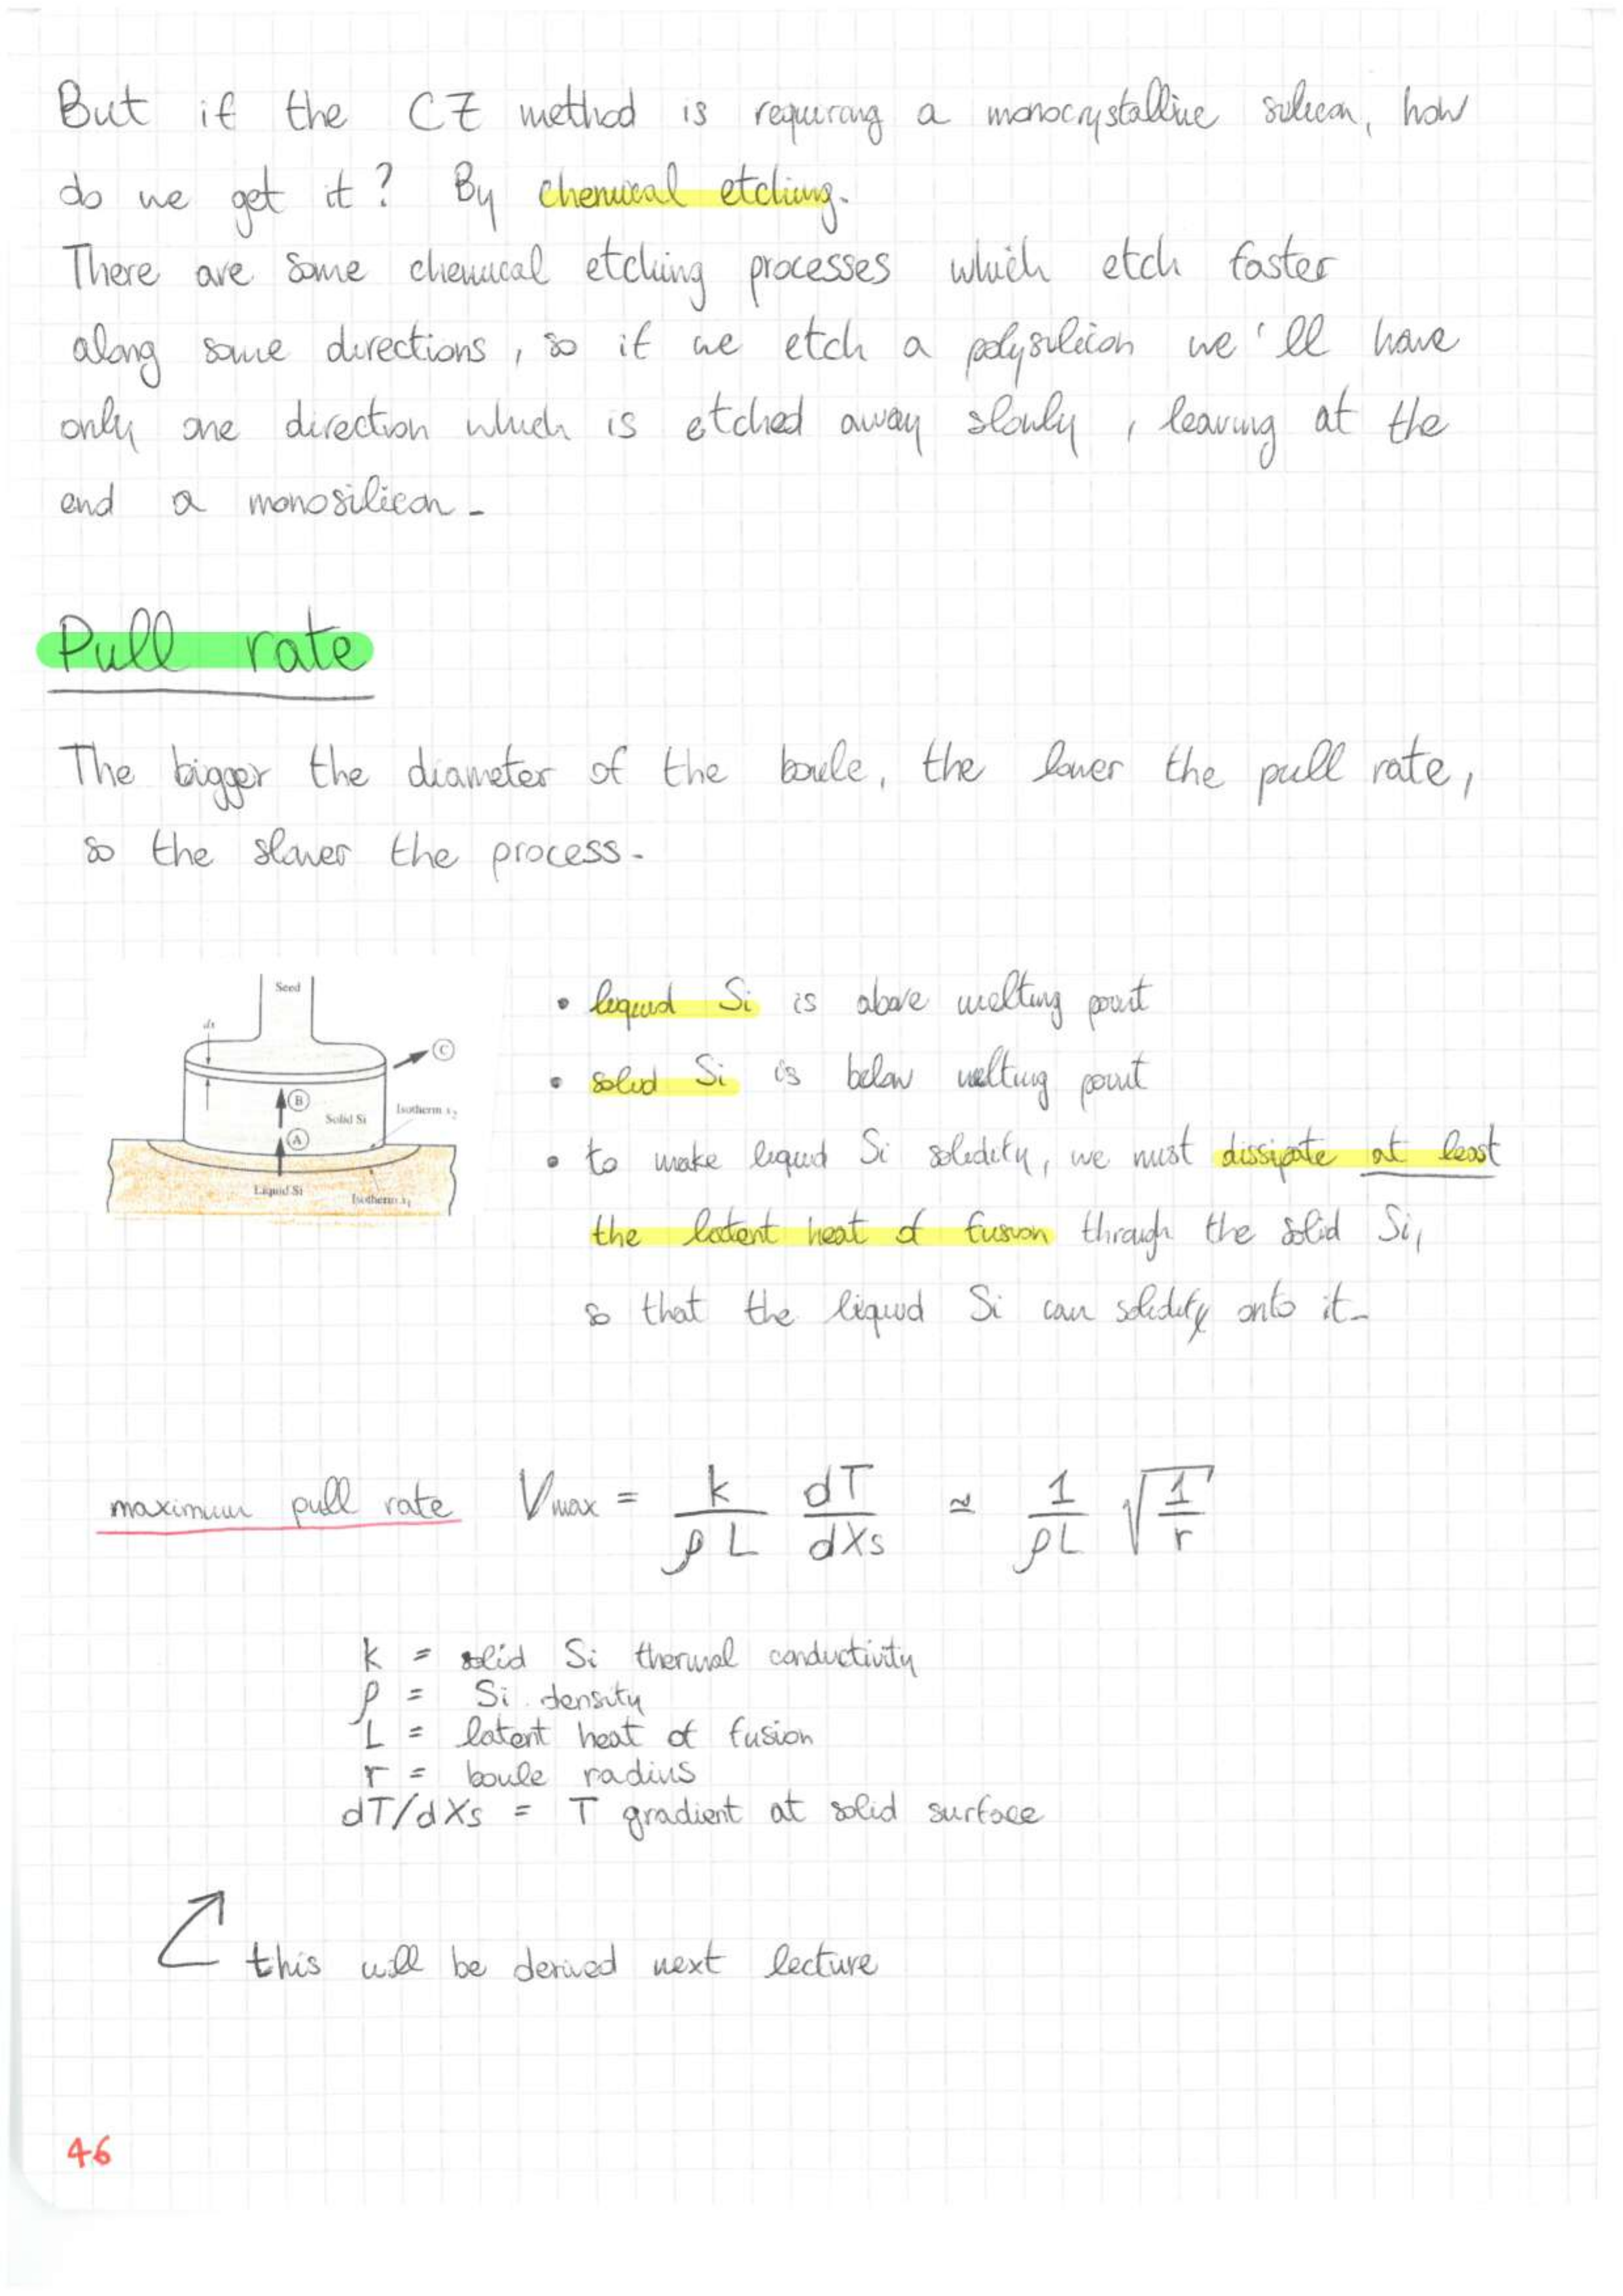 But if the CZ method is requiring a monocrystalline silicon, how
do we get it? By chemical etching.
There are some chemical etching processes which etch faster
along some directions, so if we etch a polysilicon we'll have
only one direction which is etched away slowly, leaving at the
end a monosilicon-
Pull rate
The bigger the diameter of the boule, the lower the pull rate,
so the slower the process-
Seed
dx
C
B
Solid Si
Isotherm x₂
A
Liquid Si
Isotherm x₁
• liquid Si is above melting point
• solid Si is below melting point
• to make liquid Si solidify, we must dissipate at least
the latent heat of fusion through the solid Si,
so that the liquid Si can solidify onto it-
maximum pull rate Vmax = k/ρL dT/dXs ≃ 1/ρL √(1/r)
k = solid Si thermal conductivity
ρ = Si density
L = latent heat of fusion
r = boule radius
dT/dXs = T gradient at solid surface
this will be derived next lecture
46